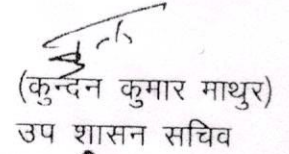 (कुन्दन कुमार माथुर)
उप शासन सचिव